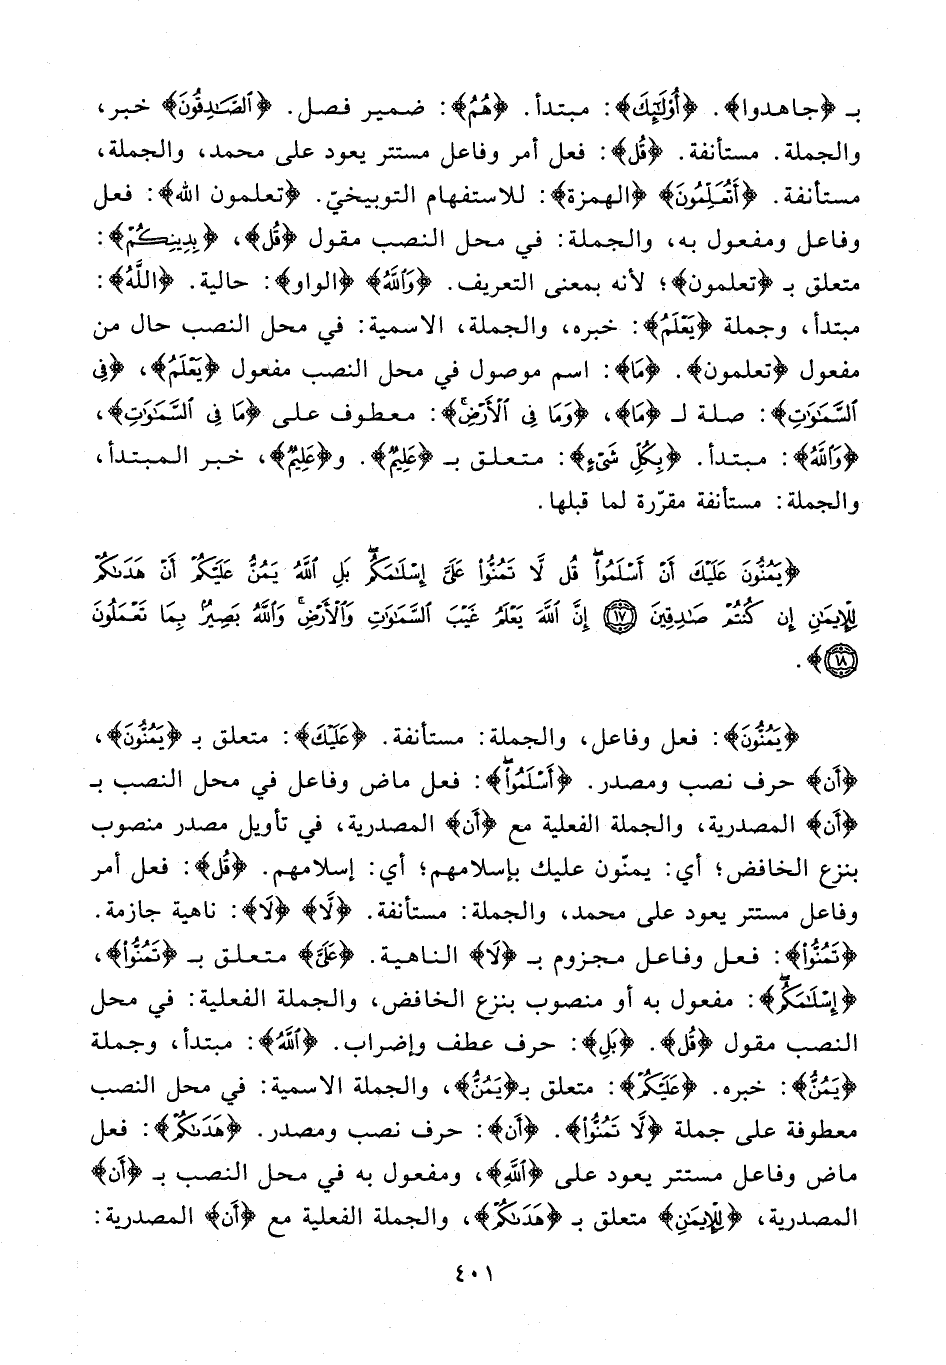 بـ ﴿جاهدوا﴾. ﴿أُوْلَٰٓئِكَ﴾: مبتدأ. ﴿هُمُ﴾: ضمير فصل. ﴿ٱلصَّٰدِقُونَ﴾ خبر،
والجملة. مستأنفة. ﴿قُل﴾: فعل أمر وفاعل مستتر يعود على محمد، والجملة،
مستأنفة. ﴿أَتُعَلِّمُونَ﴾ ﴿الهمزة﴾: للاستفهام التوبيخيّ. ﴿تعلمون الله﴾: فعل
وفاعل ومفعول به، والجملة: في محل النصب مقول ﴿قُل﴾، ﴿بِدِينِكُمْ﴾:
متعلق بـ ﴿تعلمون﴾؛ لأنه بمعنى التعريف. ﴿وَٱللَّهُ﴾ ﴿الواو﴾: حالية. ﴿اللَّهُ﴾:
مبتدأ، وجملة ﴿يَعْلَمُ﴾: خبره، والجملة، الاسمية: في محل النصب حال من
مفعول ﴿تعلمون﴾. ﴿مَا﴾: اسم موصول في محل النصب مفعول ﴿يَعْلَمُ﴾، ﴿فِي
ٱلسَّمَٰوَٰتِ﴾: صلة لـ ﴿مَا﴾، ﴿وَمَا فِي ٱلْأَرْضِ ۚ﴾: معطوف على ﴿مَا فِي ٱلسَّمَٰوَٰتِ﴾،
﴿وَٱللَّهُ﴾: مبتدأ. ﴿بِكُلِّ شَيْءٍ﴾: متعلق بـ ﴿عَلِيمٌ﴾. و﴿عَلِيمٌ﴾، خبر المبتدأ،
والجملة: مستأنفة مقرّرة لما قبلها.
﴿يَمُنُّونَ عَلَيْكَ أَنْ أَسْلَمُوا۟ ۖ قُل لَّا تَمُنُّوا۟ عَلَىَّ إِسْلَٰمَكُم ۖ بَلِ ٱللَّهُ يَمُنُّ عَلَيْكُمْ أَنْ هَدَىٰكُمْ
لِلْإِيمَٰنِ إِن كُنتُمْ صَٰدِقِينَ ١٧ إِنَّ ٱللَّهَ يَعْلَمُ غَيْبَ ٱلسَّمَٰوَٰتِ وَٱلْأَرْضِ ۚ وَٱللَّهُ بَصِيرٌۢ بِمَا تَعْمَلُونَ
١٨﴾.
﴿يَمُنُّونَ﴾: فعل وفاعل، والجملة: مستأنفة. ﴿عَلَيْكَ﴾: متعلق بـ ﴿يَمُنُّونَ﴾،
﴿أَن﴾ حرف نصب ومصدر. ﴿أَسْلَمُوا۟ ۖ﴾: فعل ماض وفاعل في محل النصب بـ
﴿أَن﴾ المصدرية، والجملة الفعلية مع ﴿أَن﴾ المصدرية، في تأويل مصدر منصوب
بنزع الخافض؛ أي: يمنّون عليك بإسلامهم؛ أي: إسلامهم. ﴿قُل﴾: فعل أمر
وفاعل مستتر يعود على محمد، والجملة: مستأنفة. ﴿لَّا﴾ ﴿لَا﴾: ناهية جازمة.
﴿تَمُنُّوا۟﴾: فعل وفاعل مجزوم بـ ﴿لَا﴾ الناهية. ﴿عَلَىَّ﴾ متعلق بـ ﴿تَمُنُّوا۟﴾،
﴿إِسْلَٰمَكُم ۖ﴾: مفعول به أو منصوب بنزع الخافض، والجملة الفعلية: في محل
النصب مقول ﴿قُل﴾. ﴿بَلِ﴾: حرف عطف وإضراب. ﴿ٱللَّهُ﴾: مبتدأ، وجملة
﴿يَمُنُّ﴾: خبره. ﴿عَلَيْكُمْ﴾: متعلق بـ﴿يَمُنُّ﴾، والجملة الاسمية: في محل النصب
معطوفة على جملة ﴿لَّا تَمُنُّوا۟﴾. ﴿أَن﴾: حرف نصب ومصدر. ﴿هَدَىٰكُمْ﴾: فعل
ماض وفاعل مستتر يعود على ﴿ٱللَّهِ﴾، ومفعول به في محل النصب بـ ﴿أَن﴾
المصدرية، ﴿لِلْإِيمَٰنِ﴾ متعلق بـ ﴿هَدَىٰكُمْ﴾، والجملة الفعلية مع ﴿أَن﴾ المصدرية:
٤٠١